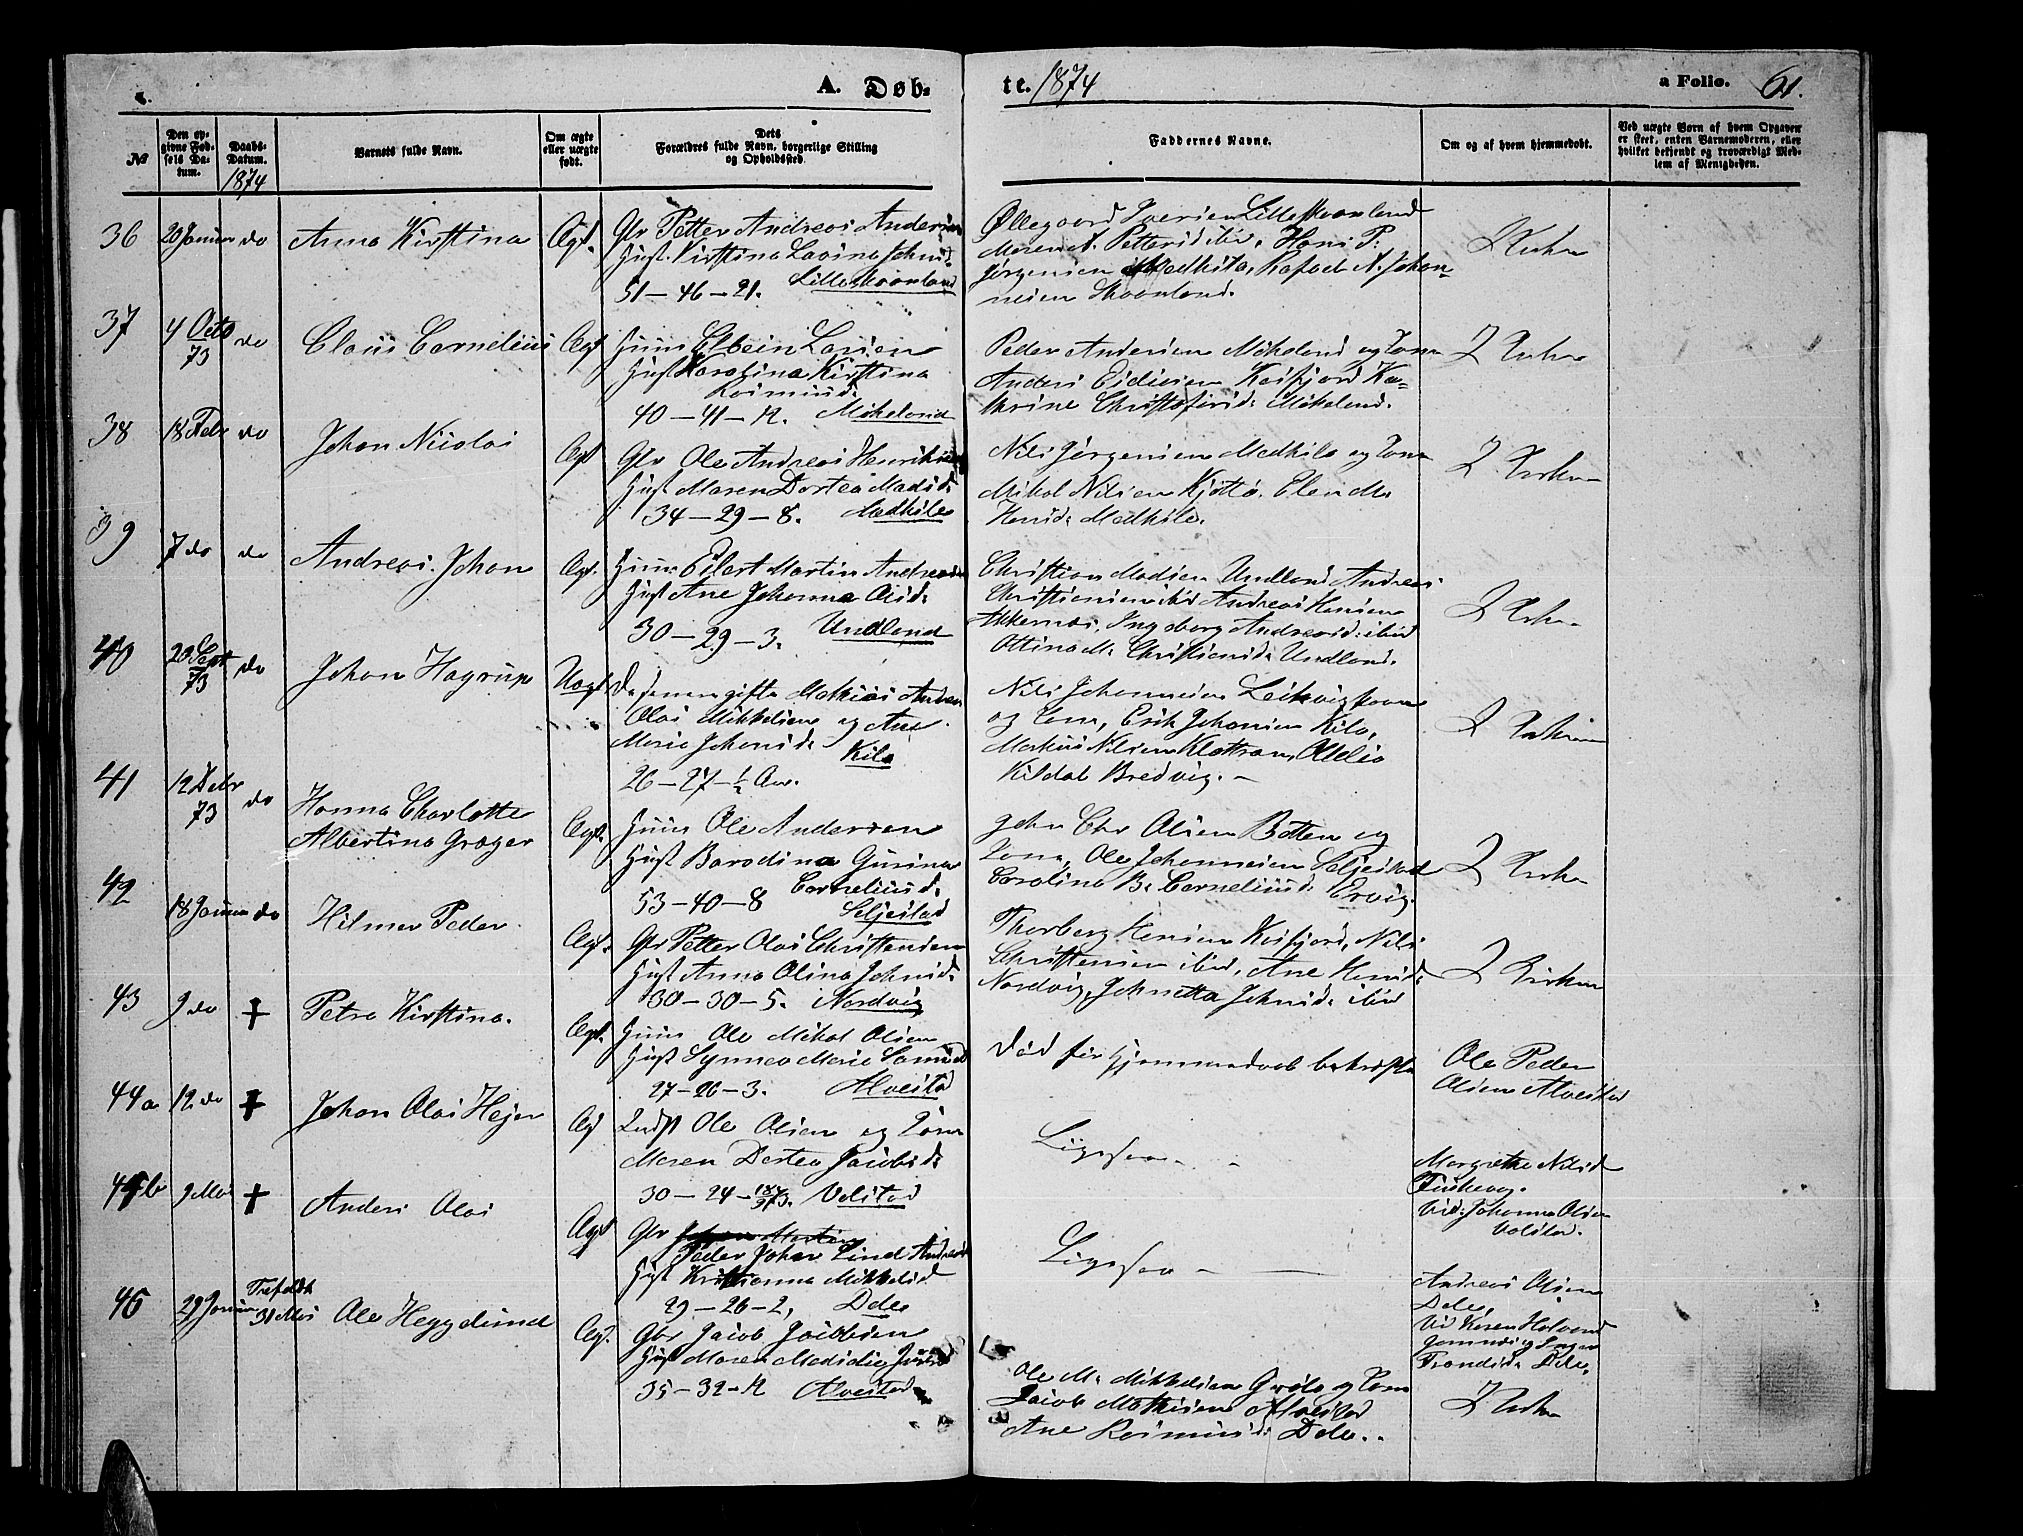 A. Døb-
te. 1874
a Folio. 61.
№
Den op-
givne Fød-
sels Da-
tum.
Daabs-
Datum.
1874
Barnets fulde Navn.
Om ægte
eller uægte
født.
Dets
Forældres fulde Navn, borgerlige Stilling
og Opholdssted.
Faddernes Navne.
Om og af hvem hjemmedøbt.
Ved uægte Børn af hvem Opgaven
er skeet, enten Barnemoderen, eller
hvilket bekjendt og troværdigt Med-
lem af Menigheden.
36
20 Januar
do
Anna Kirstina
Ægt.
Gbr Petter Andreas Andersen
Hust. Kirstina Lavina Johnsd.
51–46–21. Lilleskaanland
Øllegaard Iversen Lilleskaanland
Maren A. Pettersd ibid, Hans P:
Jørgensen Madkila, Rafael A. Johan-
nesen Skaanland.
I Kirken
37
4 Octo
73
do
Claus Cornelius
Ægt
Huus Elbein Larsen
Hust Karolina Kirstina
Rasmusd.
40–41–12. Mikeland
Peder Andersen Mikeland og Kone
Anders Eidissen Kasfjord Ka-
thrine Christofersd: Mikeland.
I Kirken
38
18 Febr
do
Johan Nicolai
Ægt
Gbr Ole Andreas Henriksen
Hust Maren Dortea Madsd:
34–29–8. Madkila
Nils Jørgensen Madkila og Kone
Mikal Nilsen Kjøtta. Elen M.
Hansd: Madkila.
I Kirken
39
7 do
do
Andreas Johan
Ægt.
Huus Eilert Martin Andreas
Hust Ane Johanna Olsd:
30–29–3. Undland
Christian Madsen Undland Andreas
Christiansen ibid Andreas Hansen
Akkernæs, Ingeborg Andreasd: ibid
Ottina M. Christiansd: Undland.
I Kirken
40
20 Sept
73
do
Johan Hagrup
Uægt
Mathias Andreas
Olai Mikkelsen og Ane
Marie Johansd: Kila
26–27–½ Aar.
Nils Johannesen Leikvig
og Kone, Erik Johansen Kila,
Markus Nilsen Kløttran, Ollelia
Kildal Bredvig.
I Kirken
41
12 Febr
73
do
Hanna Charlotte
Albertina Grøger
Ægt.
Huus Ole Andersen
Hust Barodina Gurina
Corneliusd:
53–40–8 Seljestad
John Chr Olsen Botten og
Kone, Ole Johannesen Seljestad
Carolina B: Corneliusd: Ervig.
I Kirken
42
18 Januar
do
Hilmar Peder
Ægt.
Gbr Petter Olai Christensen
Hust Anna Olina Johnsd:
30–30–5. Nordvig
Thorberg Hansen Kasfjord, Nils
Christensen ibid, Ane Hansd:
Nordvig, Johnetta Johnsd: ibid
I Kirken
43
9 do
+
Petra Kirstina.
Ægt.
Huus Ole Mikal Olsen
Hust Synnea Marie Samuel
27–26–3. Alvestad
Død før Hjemmedaab bekrefte
Ole Peder
Olsen Alvestad
44a
12 do
+
Johan Olai Hejer
Ægt
Indst Ole Olsen og Kone
Maren Dortea Jacobsd:
30–24– Volstad
Ligesaa
Margrethe Nilsd
Vid: Johanna Olsen
Volstad.
44b
9 Mai
+
Anders Olai
Ægt
Gbr
Peder Johan Lind Andreas
Hust Kristianna Mikkelsd
29–26–2, Dale
Ligesaa
Andreas Olsen
Dale,
Vid Karen Halvord
Trondsd: Dale.
45
29 Januar
Trefoldt
31 Mai
Ole Heggelund
Ægt.
Gbr Jacob Jacobsen
Hust Maren
35–32–12 Alvestad
Ole M: Mikkelsen og Kone
Jacob Mathisen Alvestad
Ane Rasmusd: Dale.
I Kirken